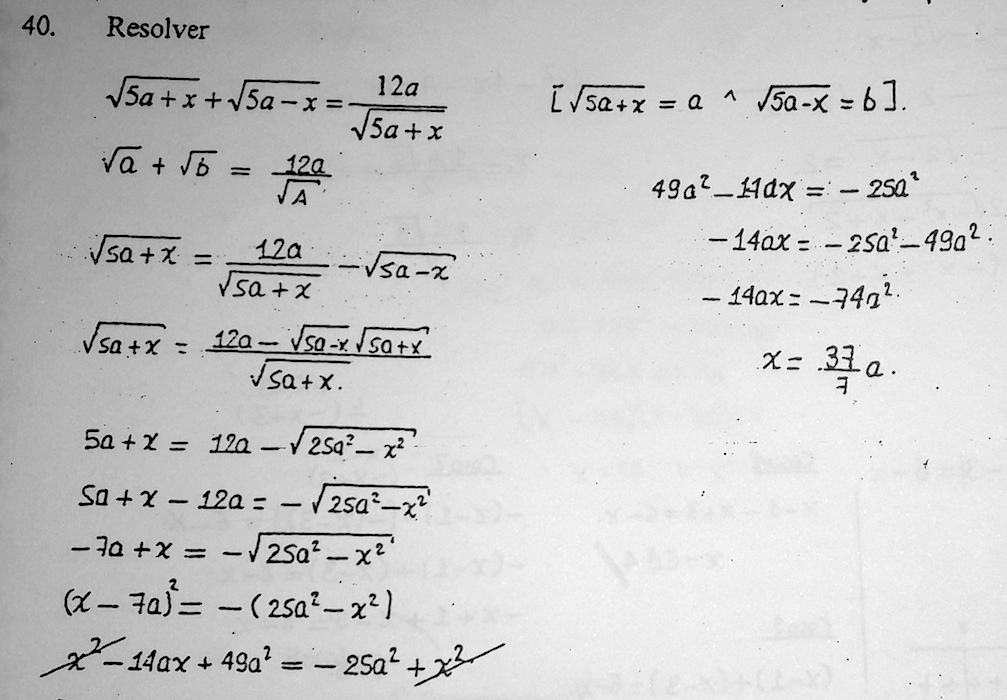 40. Resolver
√(5a + x) + √(5a − x) = 12a / √(5a + x)
√a + √b = 12a / √A
√(5a + x) = 12a / √(5a + x) − √(5a − x)
√(5a + x) = (12a − √(5a − x) √(5a + x)) / √(5a + x).
5a + x = 12a − √(25a² − x²)
5a + x − 12a = − √(25a² − x²)
− 7a + x = − √(25a² − x²)
(x − 7a)² = − (25a² − x²)
x² − 14ax + 49a² = − 25a² + x²
[√(5a+x) = a ^ √(5a-x) = b].
49a² − 14ax = − 25a²
− 14ax = − 25a² − 49a².
− 14ax = − 74a².
x = 37/7 a.